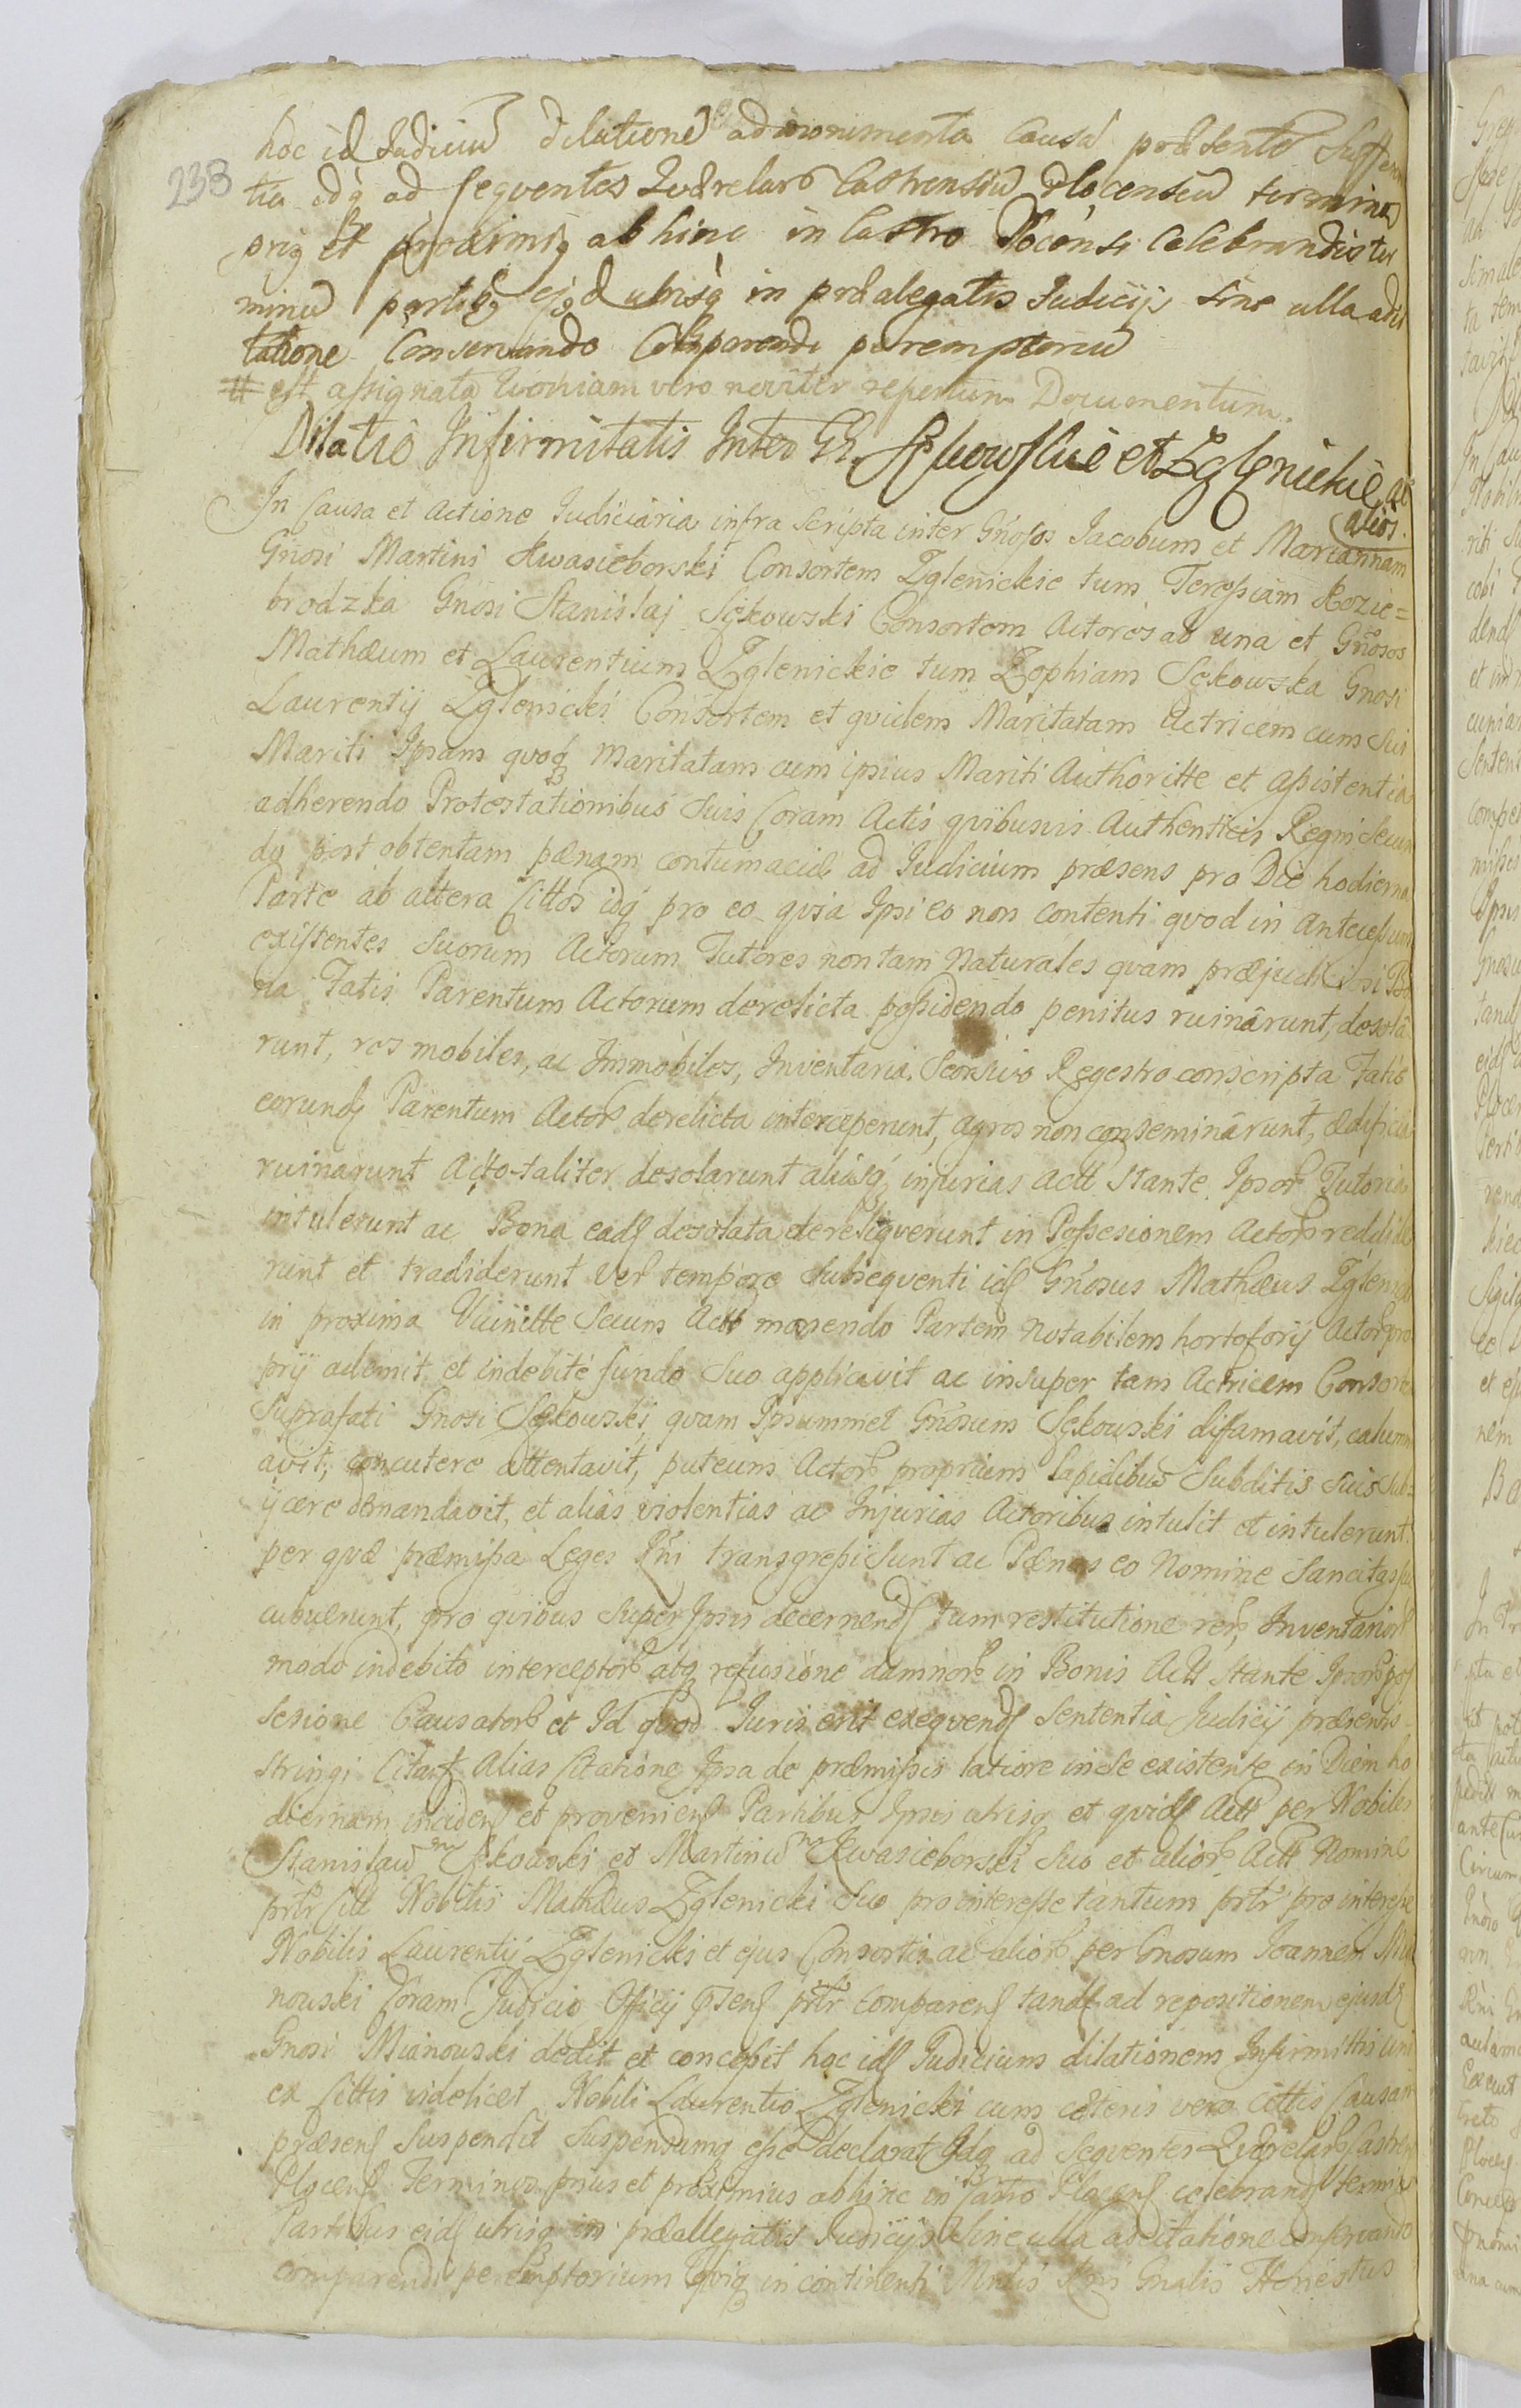 238
hoc id Judiciu dilatione ad monimenta Causa præsente
tia idq ad seqventes Qværelars Castrensiu Plocensiu termino
priq et proximiq ab hinc in Castro Plocensi Celebrandis ter
minu partibq ejqd utrisq in præalegatis Judicijs sine ulla adci
tatione Conservando Comparendi peremptoriu
# est assignata Quoniam vero noviter repertum Documentum.
Dilatio Infirmitatis Inter GG. Sękowskie et Zglenickie ac
alios.
In Causa et Actione Judiciaria infra scripta inter Gnosos Jacobum et Mariannam
Gnosi Martini Kwasieborski Consortem Zglenickie tum Teressiam Kozie=
brodzka Gnosi Stanislaj Sękowski Consortem Actores ab una et Gnosos
Mathæum et Laurentium Zglenickie tum Zophiam Sękowska Gnosi
Laurentij Zglenicki Consortem et qvidem Maritatam Actricem cum sui
Mariti Ipsam qvoq Maritatam cum ipsius Mariti Authoritte et assistentia
adherendo Protestationibus suis Coram Actis qvibusvis Authenticis Regni secun
do post obtentam pænam contumaciæ ad Judicium præsens pro Die hodierna
Parte ab altera Cittos idq pro eo qvia Ipsi eo non contenti qvod in antecessum
existentes suorum Actorum Tutores non tam Naturales qvam præjudiciosi Bo
na Fatis Parentum Actorum derelicta possidendo penitus ruinârunt, desolâ
runt, res mobiles, ac Immobiles, Inventaria, Seorsivo Regestro conscripta Fatis
eorund Parentum Actor derelicta interceperunt, agros non conseminârunt, ædificia
ruinarunt Acto-taliter desolarunt aliasq injurias Actt Stante Ipsor Tutoria
intulerunt ac Bona ead desolata dereliqverunt in Possesionem Actor reddide
runt et tradiderunt Vel tempore subseqventi id Gnosus Mathæus Zglenicki
in proxima Viciniitte secum Actt manendo Partem notabilem hortoforij Actor pro
prij ademit, et indebité fundo suo applicavit ac insuper tam Actricem Consorte
Suprafati Gnosi Sękowski qvam Ipsummet Gnosum Sękowski difamavit, calumni
avit, concutere attentavit, puteum Actor proprium lapidibus Subditis suis sub=
ijcere demandavit, et alias violentias ac Injurias Actoribus intulit et intulerunt
per qvæ præmissa Leges Rni transgressi sunt ac Pænas eo Nomine Sancitas su
cubuerunt, pro qvibus super Ipsis decernend tum restitutione rer, Inventarior
modo indebito interceptor atq refusione damnor in Bonis Actt Stante Ipsor pos
sesione Causator et Id qvod Juris erit exeqvend Sententia Judicij præsentis
stringi Citant Alias Citatione Ipsa de præmissis latiore in se existente in Diem ho
diernam inciden et provenien Partibus Ipsis utrisq et qvid Actt per Nobiles
Stanislau Sękowski et Martinu Kwasieborski suo et alior Actt Nomine
prtr Citt Nobilis Mathæus Zglenicki suo pro interesse tantum prtr pro interesse
Nobilis Laurentij Zglenicki et ejus Consortis ac alior per Gnosum Joannem Mia
nowski Coram Judicio Officij psen prtr comparen tand ad repositionem ejusd
Gnosi Mianowski dedit et concessit hoc id Judicium dilationem Infirmittis uni
ex Cittis videlicet Nobili Laurentio Zglenicki cum cæteris vero Cittis Causam
præsen Suspendit Suspensamq esse declarat Idq ad seqventes Qværelar Castren
Plocen Terminos prius et proximius abhinc in Castro Plocen celebrand termin
Partibus eid utrisq in præallegatis Judicijs sine ulla adcitatione conservando
comparendi peremptorium Qviq in continenti Mnlis Rni Gnalis Honestus